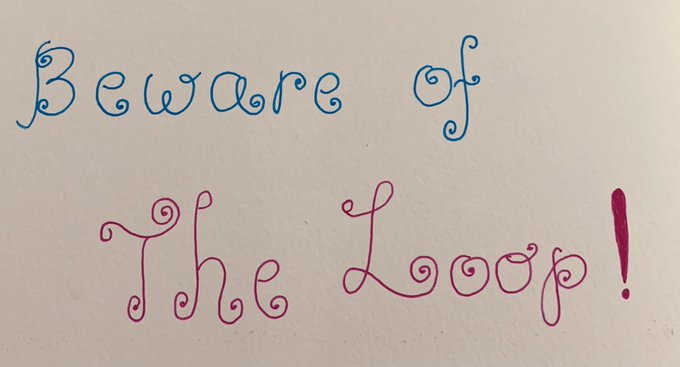 Beware of
The Loop!